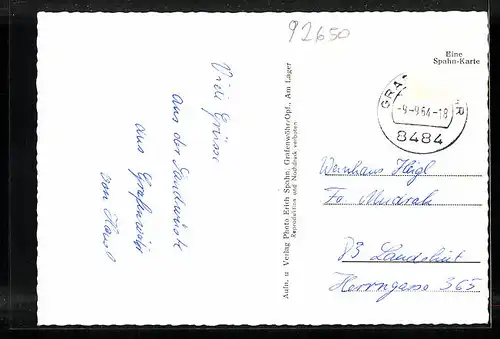 92650
Eine
Spahn-Karte
-9-9.64-18
8484
Viele Grüsse
aus der Sandwüste
aus Grafenwöhr
von Hans
Aufn. u Verlag Photo Erich Spahn, Grafenwöhr-Opf., Am Lager
Reproduktion und Nachdruck verboten
Weinhaus Heigl
Fa. Mudrak
83 Landshut
Herrngasse 365